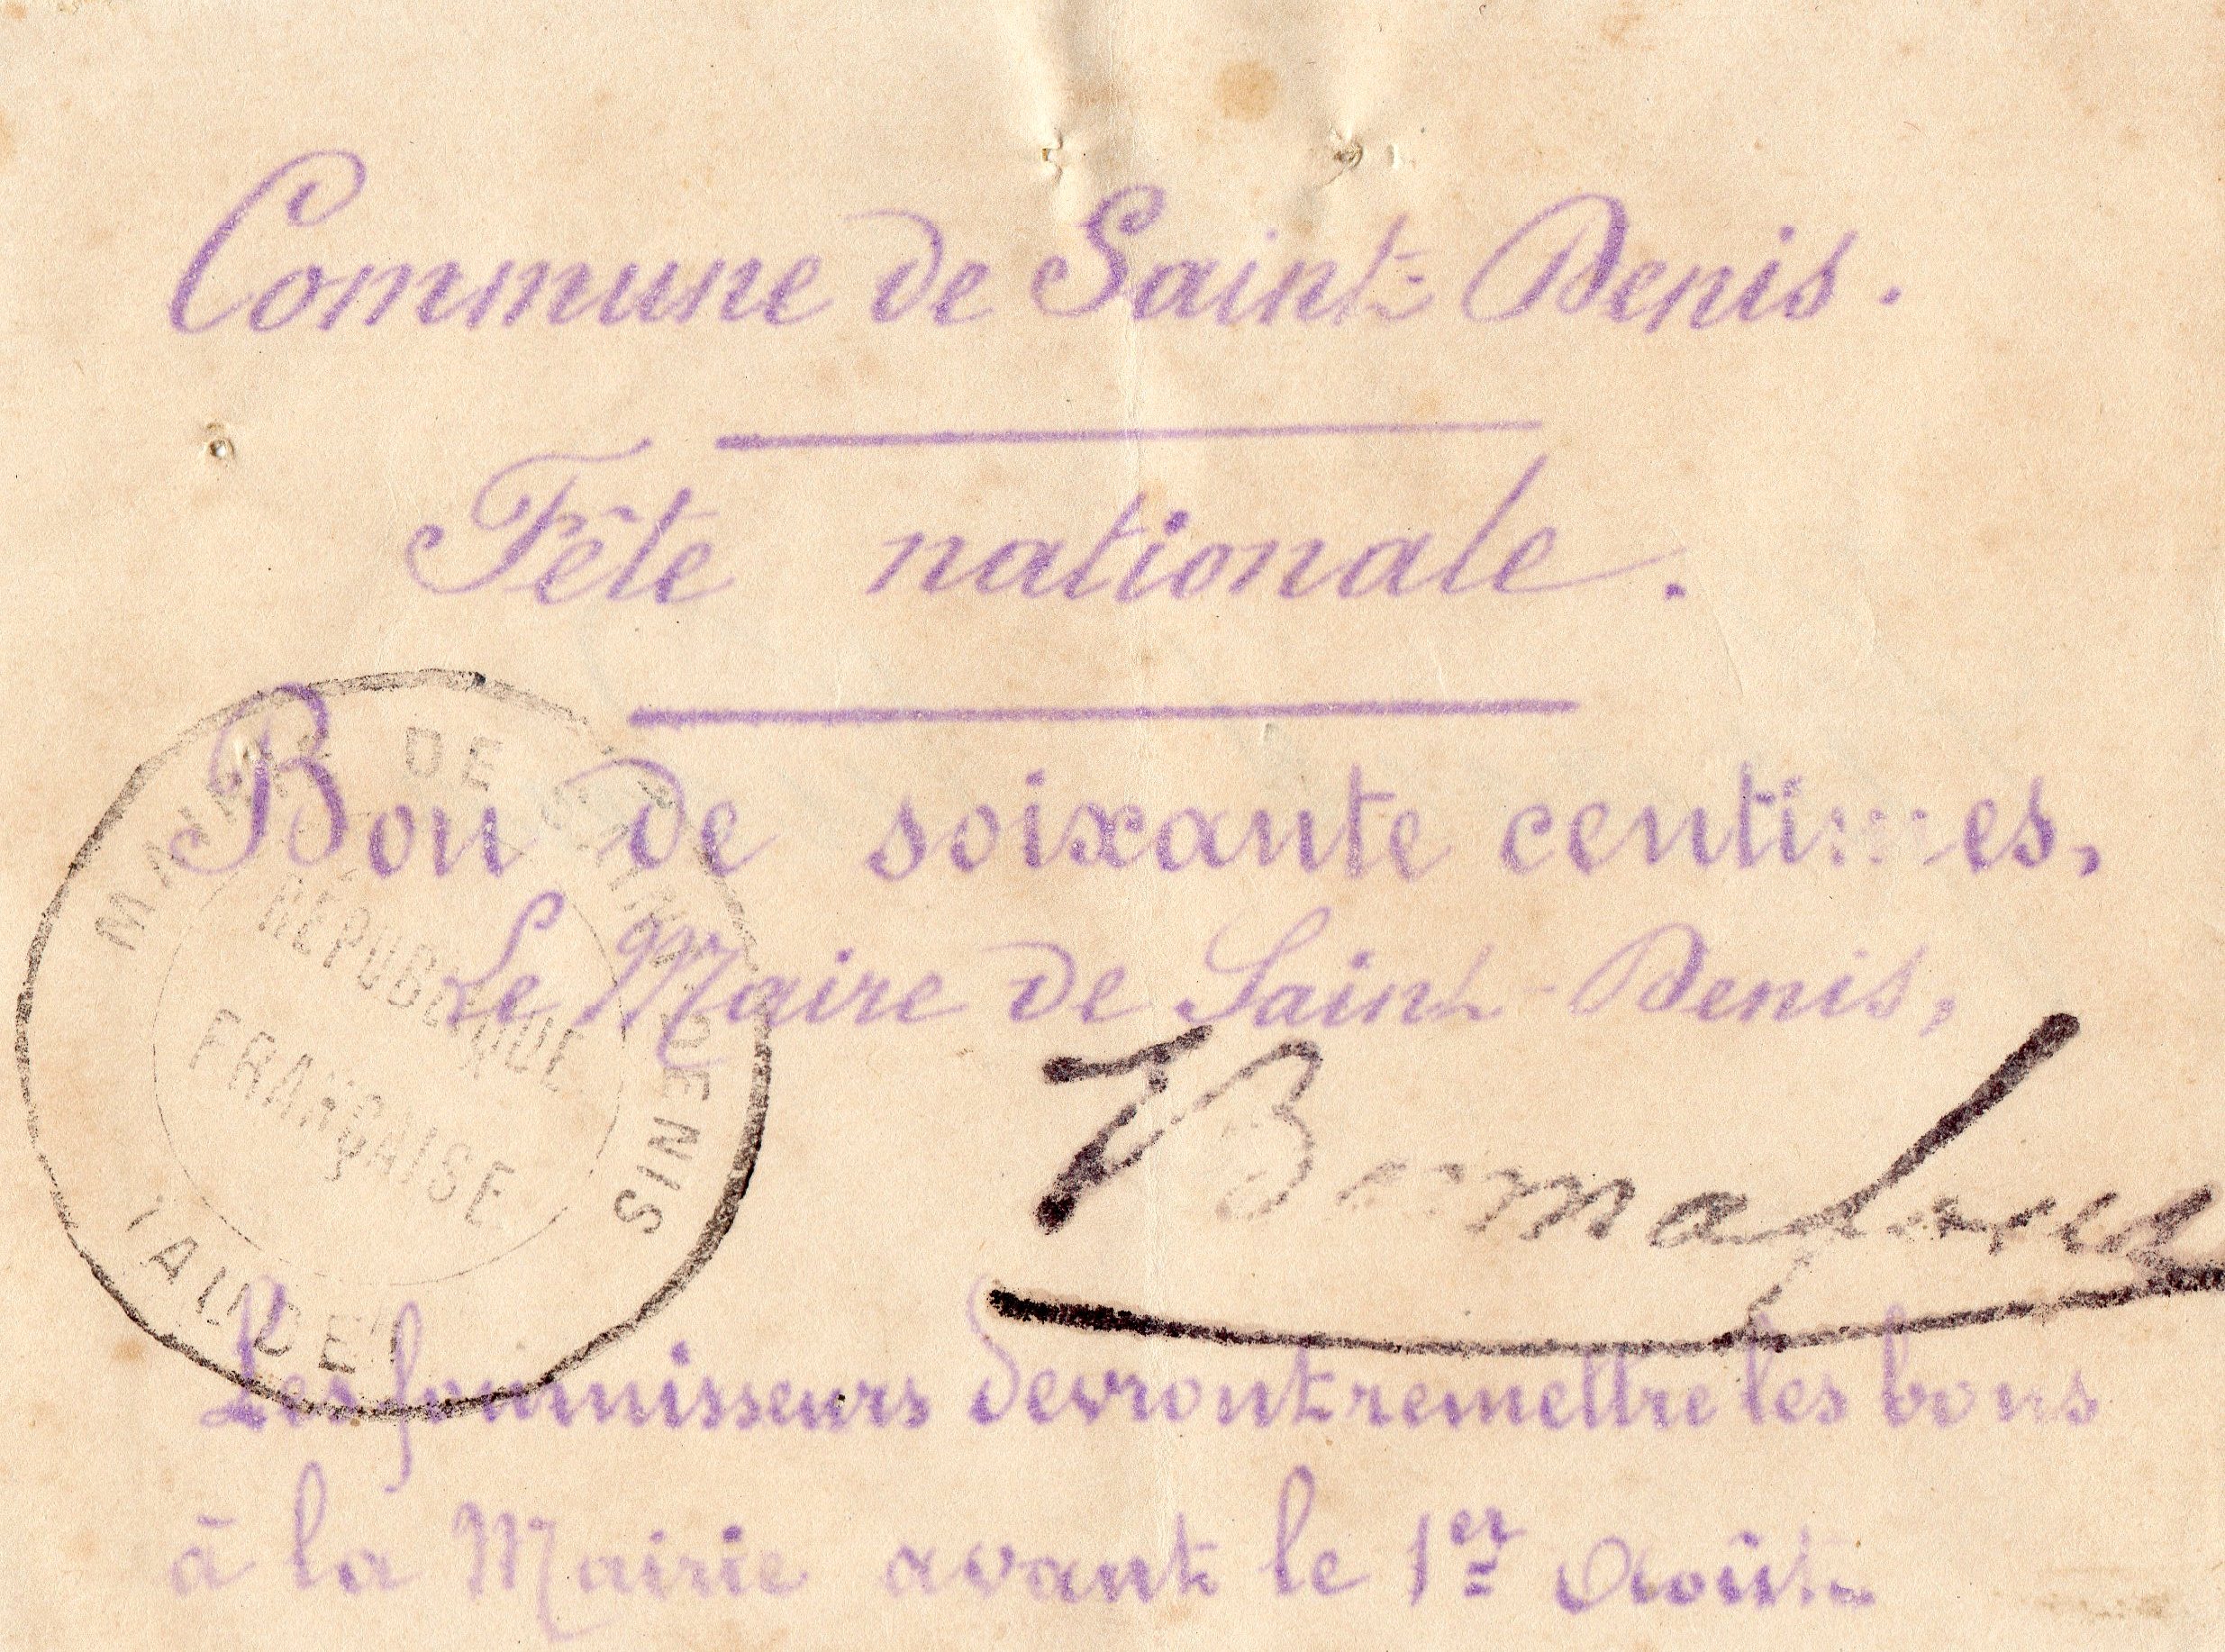 Commune de Saint-Denis.
Fête nationale.
Bon de soixante centimes,
Le Maire de Saint-Denis,
MAIRIE DE SAINT DENIS
RÉPUBLIQUE
FRANÇAISE
(AUDE)
Les fournisseurs devront remettre les bons
à la Mairie avant le 1er Août